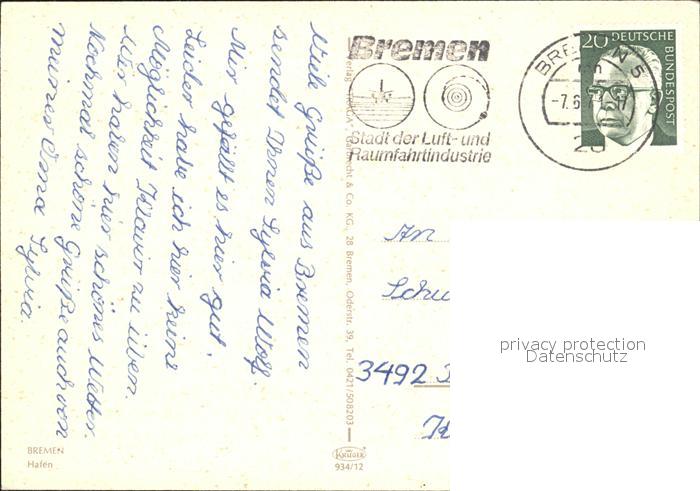 Viele Grüße aus Bremen
sendet Ihnen Sylvia Wolf.
Mir gefällt es hier gut.
Leider habe ich hier keine
Möglichkeit Klavier zu üben.
Wir haben hier schönes Wetter.
Nochmal schöne Grüße auch von
meiner Oma Sylvia.
BREMEN
Hafen
& Co. KG., 28 Bremen, Oderstr. 39, Tel. 0421/508203
KRÜGER
934/12
Bremen
Stadt der Luft- und
Raumfahrtindustrie
BRE
-7.6.7
20
DEUTSCHE
BUNDESPOST
An
Schu
3492
privacy protection
Datenschutz